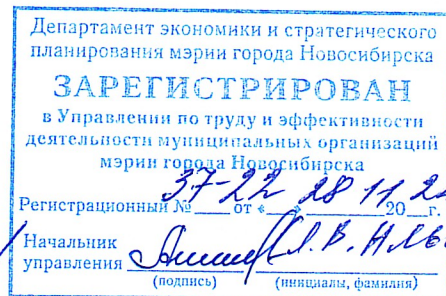 Департамент экономики и стратегического
планирования мэрии города Новосибирска
ЗАРЕГИСТРИРОВАН
в Управлении по труду и эффективности
деятельности муниципальных организаций
мэрии города Новосибирска
37-22 28 11 2
Регистрационный № от « » 20 г.
Начальник
управления
(подпись) (инициалы, фамилия)